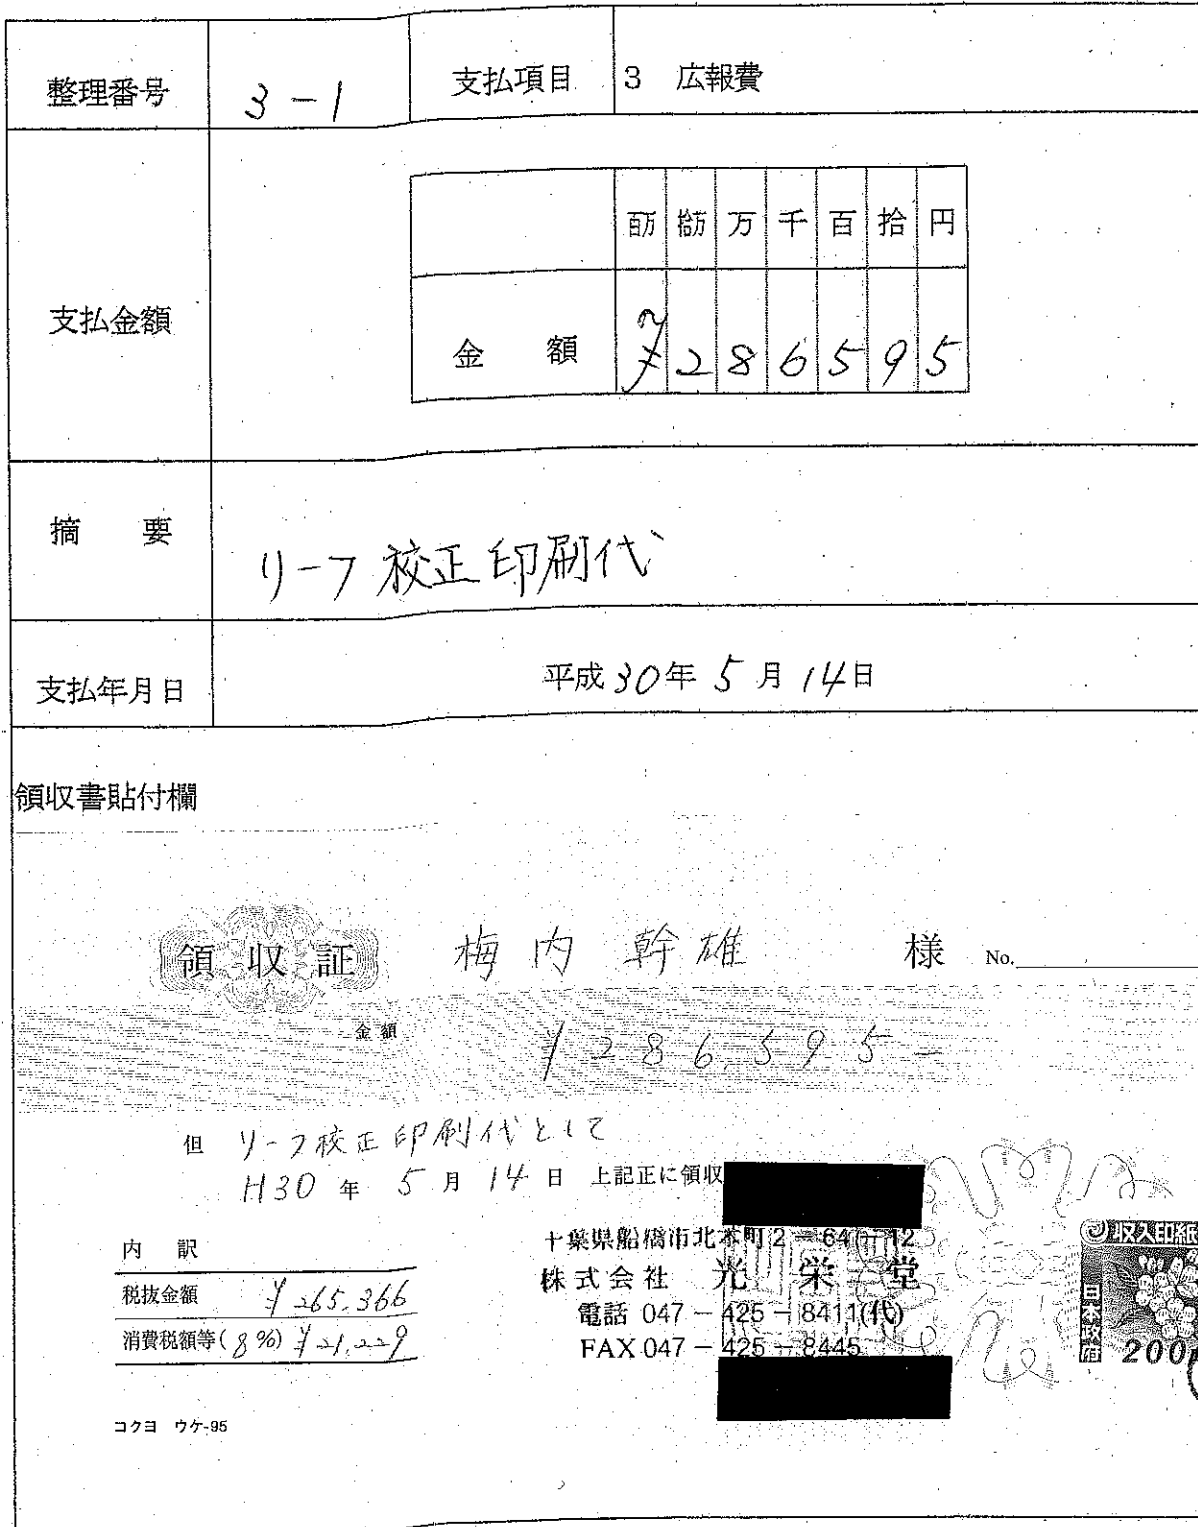 整理番号 3-1 支払項目 3 広報費
百万 拾万 万 千 百 拾 円
支払金額
金額 ¥286595
摘要 リーフ校正印刷代
支払年月日 平成30年5月14日
領収書貼付欄
領収証 梅内幹雄 様 No.
金額 ¥286,595-
但 リーフ校正印刷代として
H30年5月14日 上記正に領収
内訳
税抜金額 ¥265,366
消費税額等(8%) ¥21,229
千葉県船橋市北本町2-64-12
株式会社 光栄堂
電話 047-425-8411(代)
FAX 047-425-8445
収入印紙
日本政府
200
コクヨ ウケ-95